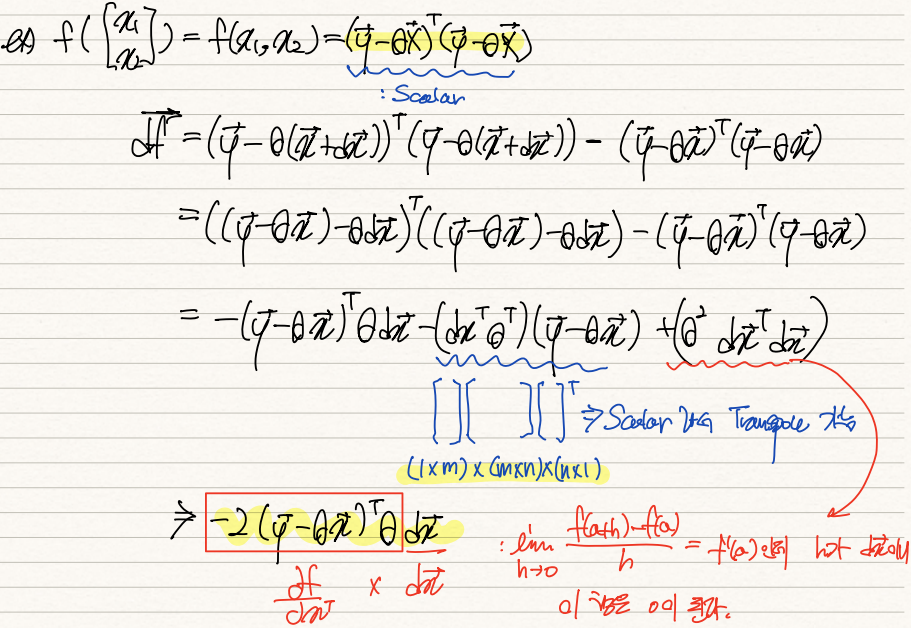 ex) f([x₁ x₂]) = f(x₁, x₂) = (y⃗-θx⃗)ᵀ(y⃗-θx⃗)
: Scalar
df⃗ = (y⃗ - θ(x⃗+dx⃗))ᵀ(y⃗-θ(x⃗+dx⃗)) - (y⃗-θx⃗)ᵀ(y⃗-θx⃗)
= ((y⃗-θx⃗)-θdx⃗)ᵀ((y⃗-θx⃗)-θdx⃗) - (y⃗-θx⃗)ᵀ(y⃗-θx⃗)
= -(y⃗-θx⃗)ᵀθdx⃗ -(dxᵀθᵀ)(y⃗-θx⃗) +(θ² dx⃗ᵀdx⃗)
[ ][ ][ ]ᵀ ⇒ Scalar Transpose 가능
(1×m)×(m×n)×(n×1)
⇒ -2(y⃗-θx⃗)ᵀθ dx⃗
df/dxᵀ × dx⃗
: lim h→0 f(a+h)-f(a)/h = f'(a)인데 h가 dx⃗이니
이 항은 0이 된다.